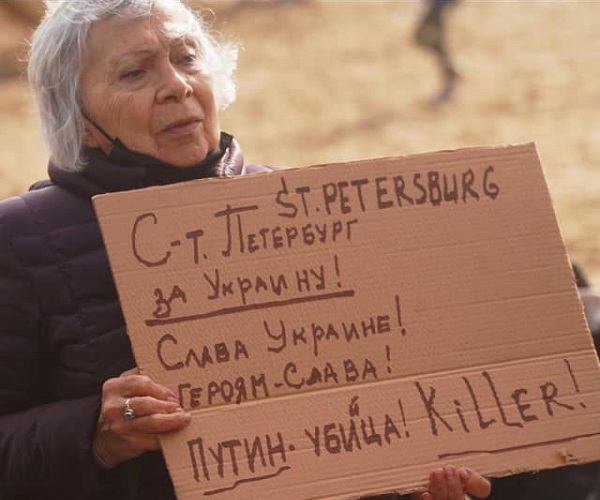 ST. PETERSBURG
С-т. Петербург
за Украину!
Слава Украине!
Героям-Слава!
Путин-убийца! Killer!